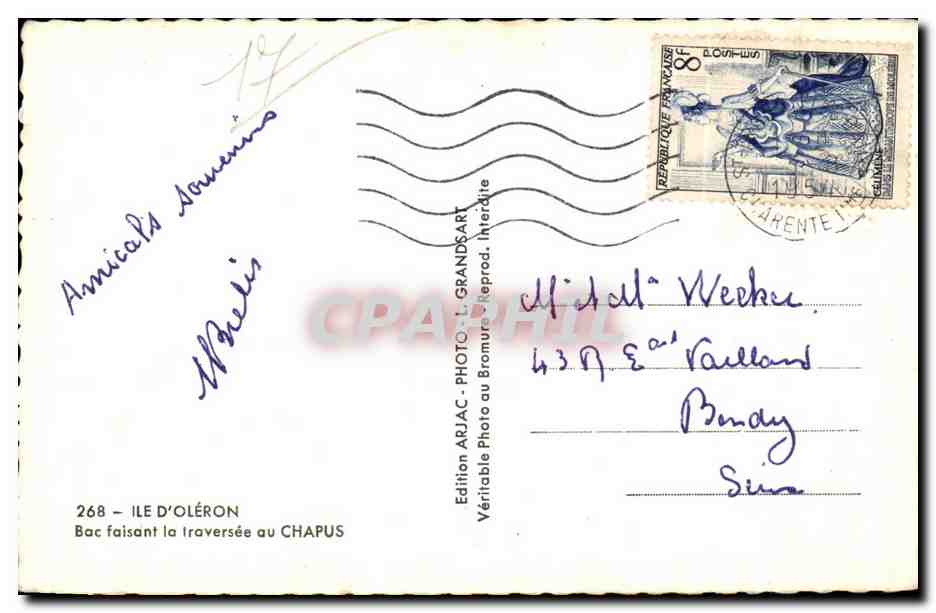 17
Amicals souvenirs
268 – ILE D'OLÉRON
Bac faisant la traversée au CHAPUS
Edition ARJAC - PHOTO - L. GRANDSART
Véritable Photo au Bromure - Reprod. Interdite
8F
POSTES
RÉPUBLIQUE FRANÇAISE
CÉLIMÈNE
DANS LE MISANTHROPE DE MOLIÈRE
CHARENTE
CPAPHIL
43 R Ed Vaillant
Bondy
Seine